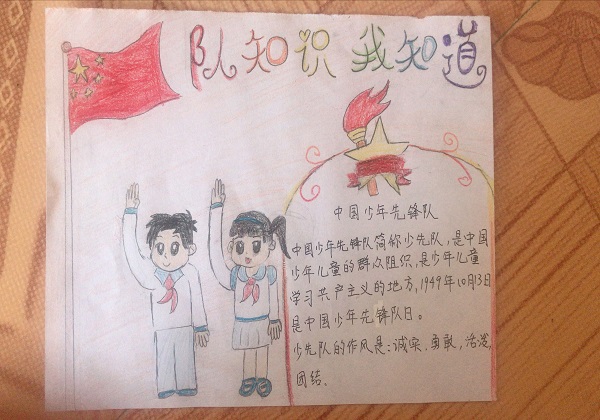 队知识 我知道
中国少年先锋队
中国少年先锋队简称少先队,是中国
少年儿童的群众组织,是少年儿童
学习共产主义的地方,1949年10月13日
是中国少年先锋队日。
少先队的作风是:诚实、勇敢、活泼、
团结、